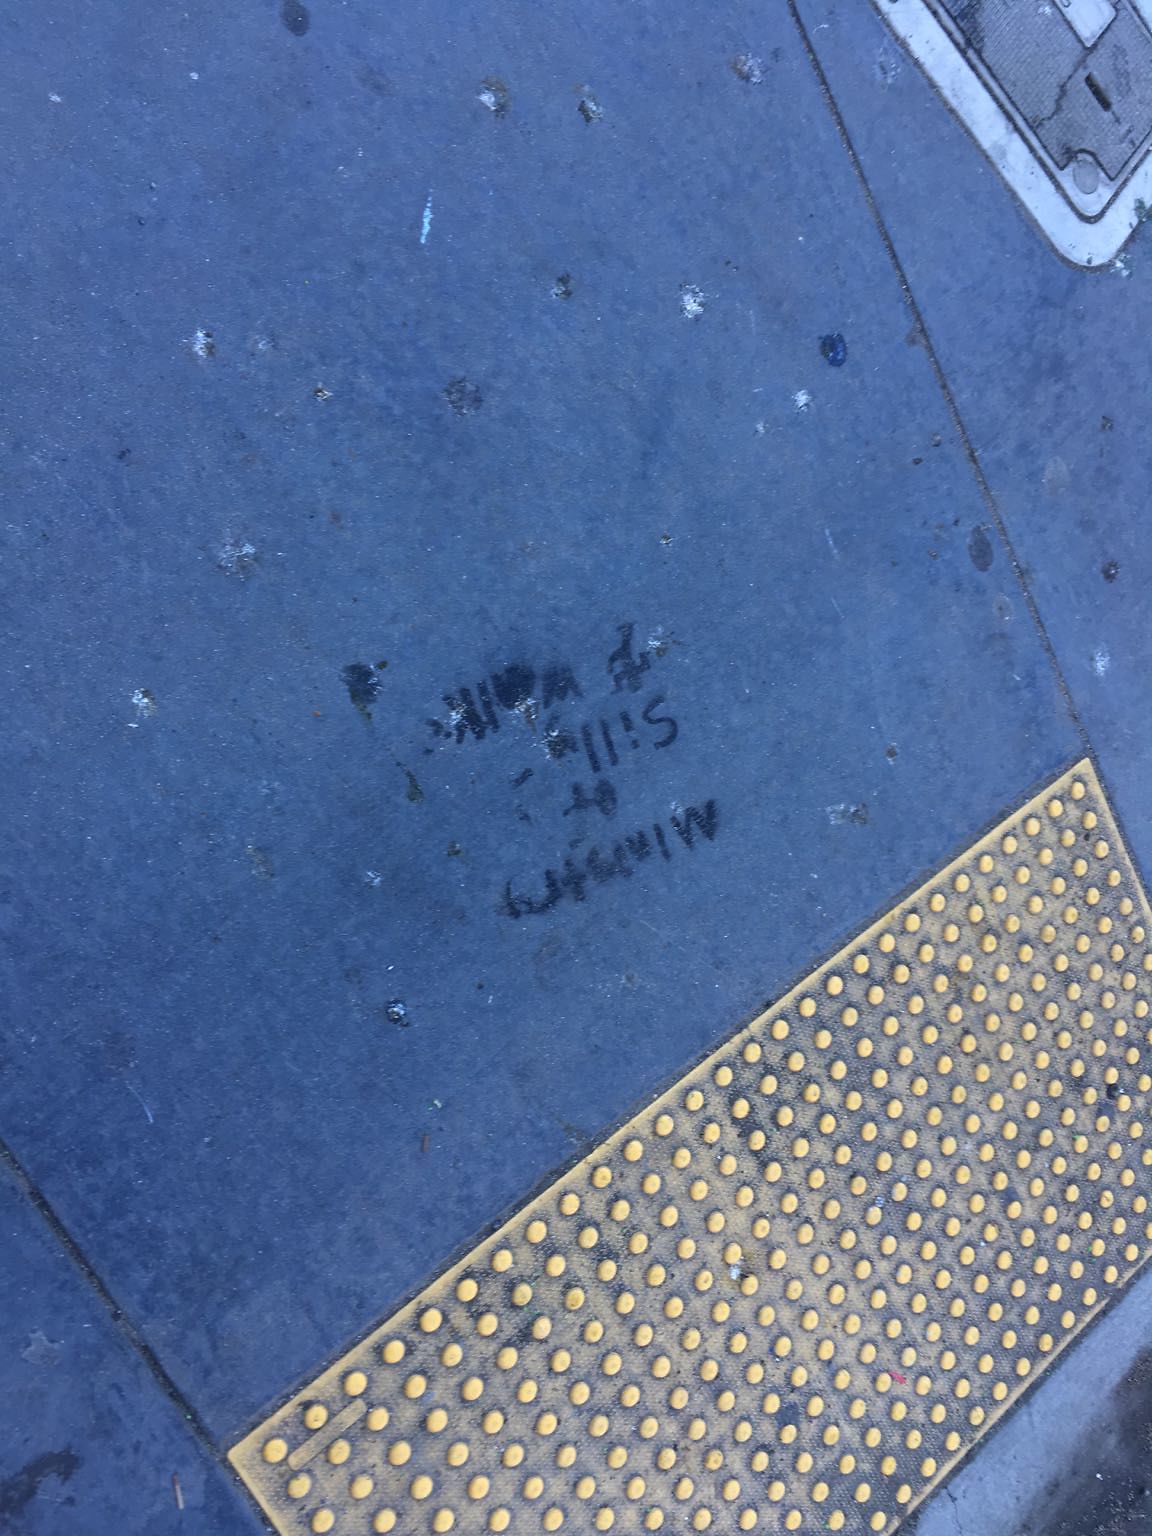 Ministry
of
Silly
Walks